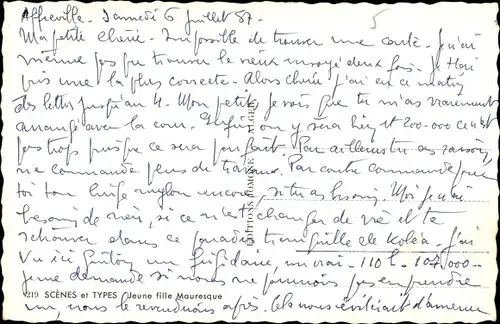 Affreville. Samedi 6 juillet 57.
Ma petite chérie. Impossible de trouver une carte. Je n'ai
même pas pu trouver le vieux envoyé deux fois. Je t'en ai
pris une la plus correcte. Alors chérie j'ai eu ce matin
des lettres jusqu'au 4. Mon petit je vois que tu m'as vraiment
arrangé avec la cour. Enfin on y sera bien et 200-000 ce n'est
pas trop puisque ce sera parfait. Par ailleurs tu as raison,
ne commande plus de travaux. Par contre commande pour
toi ton linge nylon encore, si tu as besoin. Moi je n'ai
besoin de rien, si ce n'est changer de vie et te
retrouver dans ce paradis tranquille de Koléa. J'ai
vu ici Gaston un frigidaire, un vrai - 110 l. - 104.000 -
Je me demande si nous ne pourrions pas en prendre
un, nous le revendrions après. Cela nous éviterait d'amener
9219 SCÈNES et TYPES Jeune fille Mauresque
ÉDITIONS ALGER
5